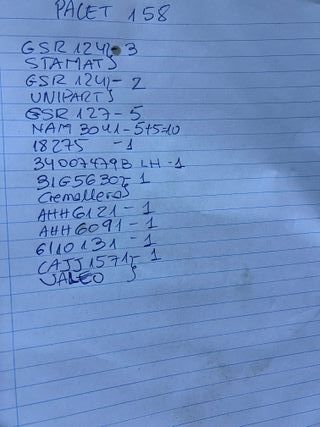 PALET 158
GSR 124 - 3
STAMAT }
GSR 124 - 2
UNIPART }
GSR 127 - 5
NAM 3041 - 5+5=10
18275 - 1
34007479B LH - 1
31G5630 - 1
Cremallera }
AHH6121 - 1
AHH6091 - 1
6110131 - 1
CAJJ1571 - 1
VALEO }